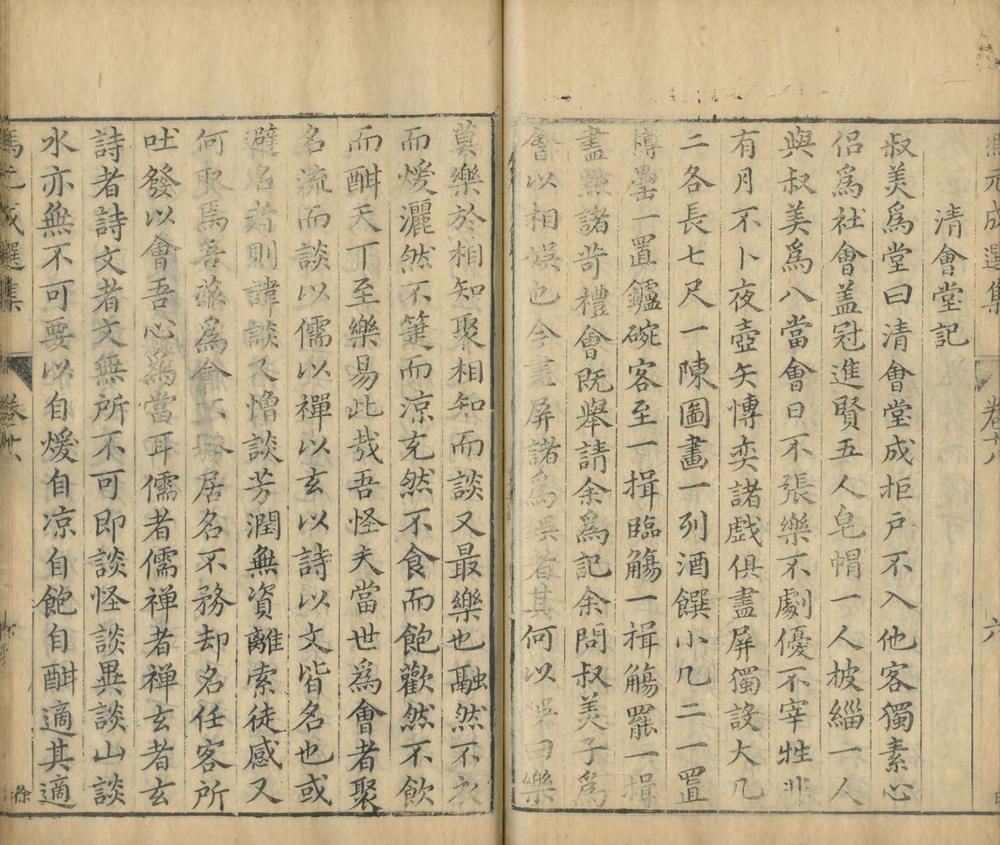 馮元成選集
卷十八
六
清會堂記
叔美爲堂曰清會堂成拒戸不入他客獨素心
侶爲社會盖冠進賢五人皂帽一人披緇一人
與叔美爲八當會日不張樂不劇優不宰牲非
有月不卜夜壺矢愽奕諸戲俱盡屏獨設大几
二各長七尺一陳圖畫一列酒饌小几二一置
樽罍一置鑪碗客至一揖臨觴一揖觴罷一揖
盡黜諸苛禮會既舉請余爲記余問叔美子爲
會以相娛也今盡屏諸爲娛者其何以娛曰樂
莫樂於相知聚相知而談又最樂也融然不衣
而煖灑然不箑而凉充然不食而飽歡然不飲
而酣天下至樂易此哉吾怪夫當世爲會者聚
名流而談以儒以禪以玄以詩以文皆名也或
避名對則諱談又憎談芳潤無資離索徒感又
何取焉吾雖爲會不居名不務却名任客所
吐發以會吾心爲當耳儒者儒禅者禅玄者玄
詩者詩文者文無所不可即談怪談異談山談
水亦無不可要以自煖自凉自飽自酣適其適
馮元成選集
卷十八